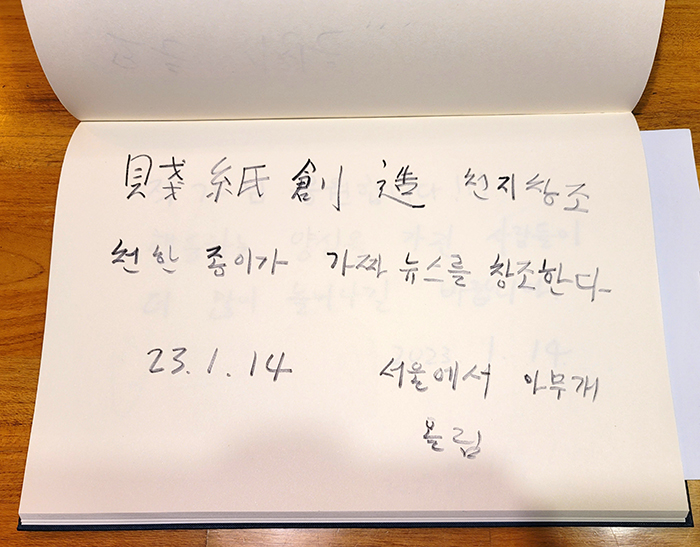 賤紙創造 천지창조
천한 종이가 가짜 뉴스를 창조한다
23.1.14 서울에서 아무개
올림